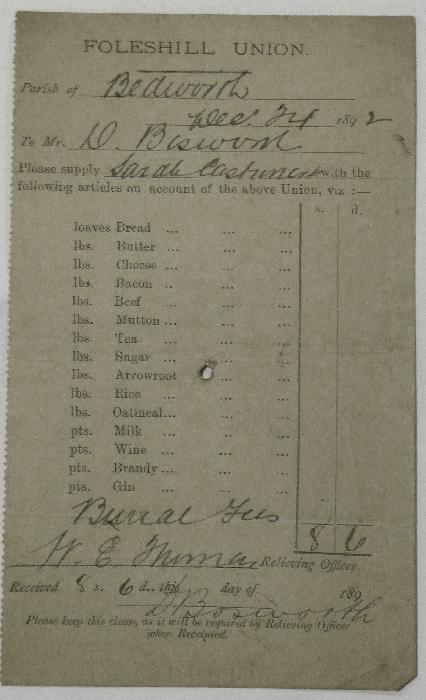 FOLESHILL UNION.
Parish of Bedworth
Dec. 24 1892
To Mr. D. Bosworth
Please supply Sarah with the
following articles on account of the above Union, viz :—
s. d.
loaves Bread ... ... ...
lbs. Butter ... ... ...
lbs. Cheese ... ... ...
lbs. Bacon .. ... ...
lbs. Beef ... ... ...
lbs. Mutton ... ... ...
lbs. Tea ... ... ...
lbs. Sugar ... ... ...
lbs. Arrowroot ... ...
lbs. Rice ... ... ...
lbs. Oatmeal... ... ...
pts. Milk ... ... ...
pts. Wine ... ... ...
pts. Brandy ... ... ...
pts. Gin ... ... ...
Burial Fees 8 6
W. E. Thomas Relieving Officer.
Received 8 s. 6 d., this day of 189
D Bosworth
Please keep this clean, as it will be required by Relieving Officer
when Receipted.